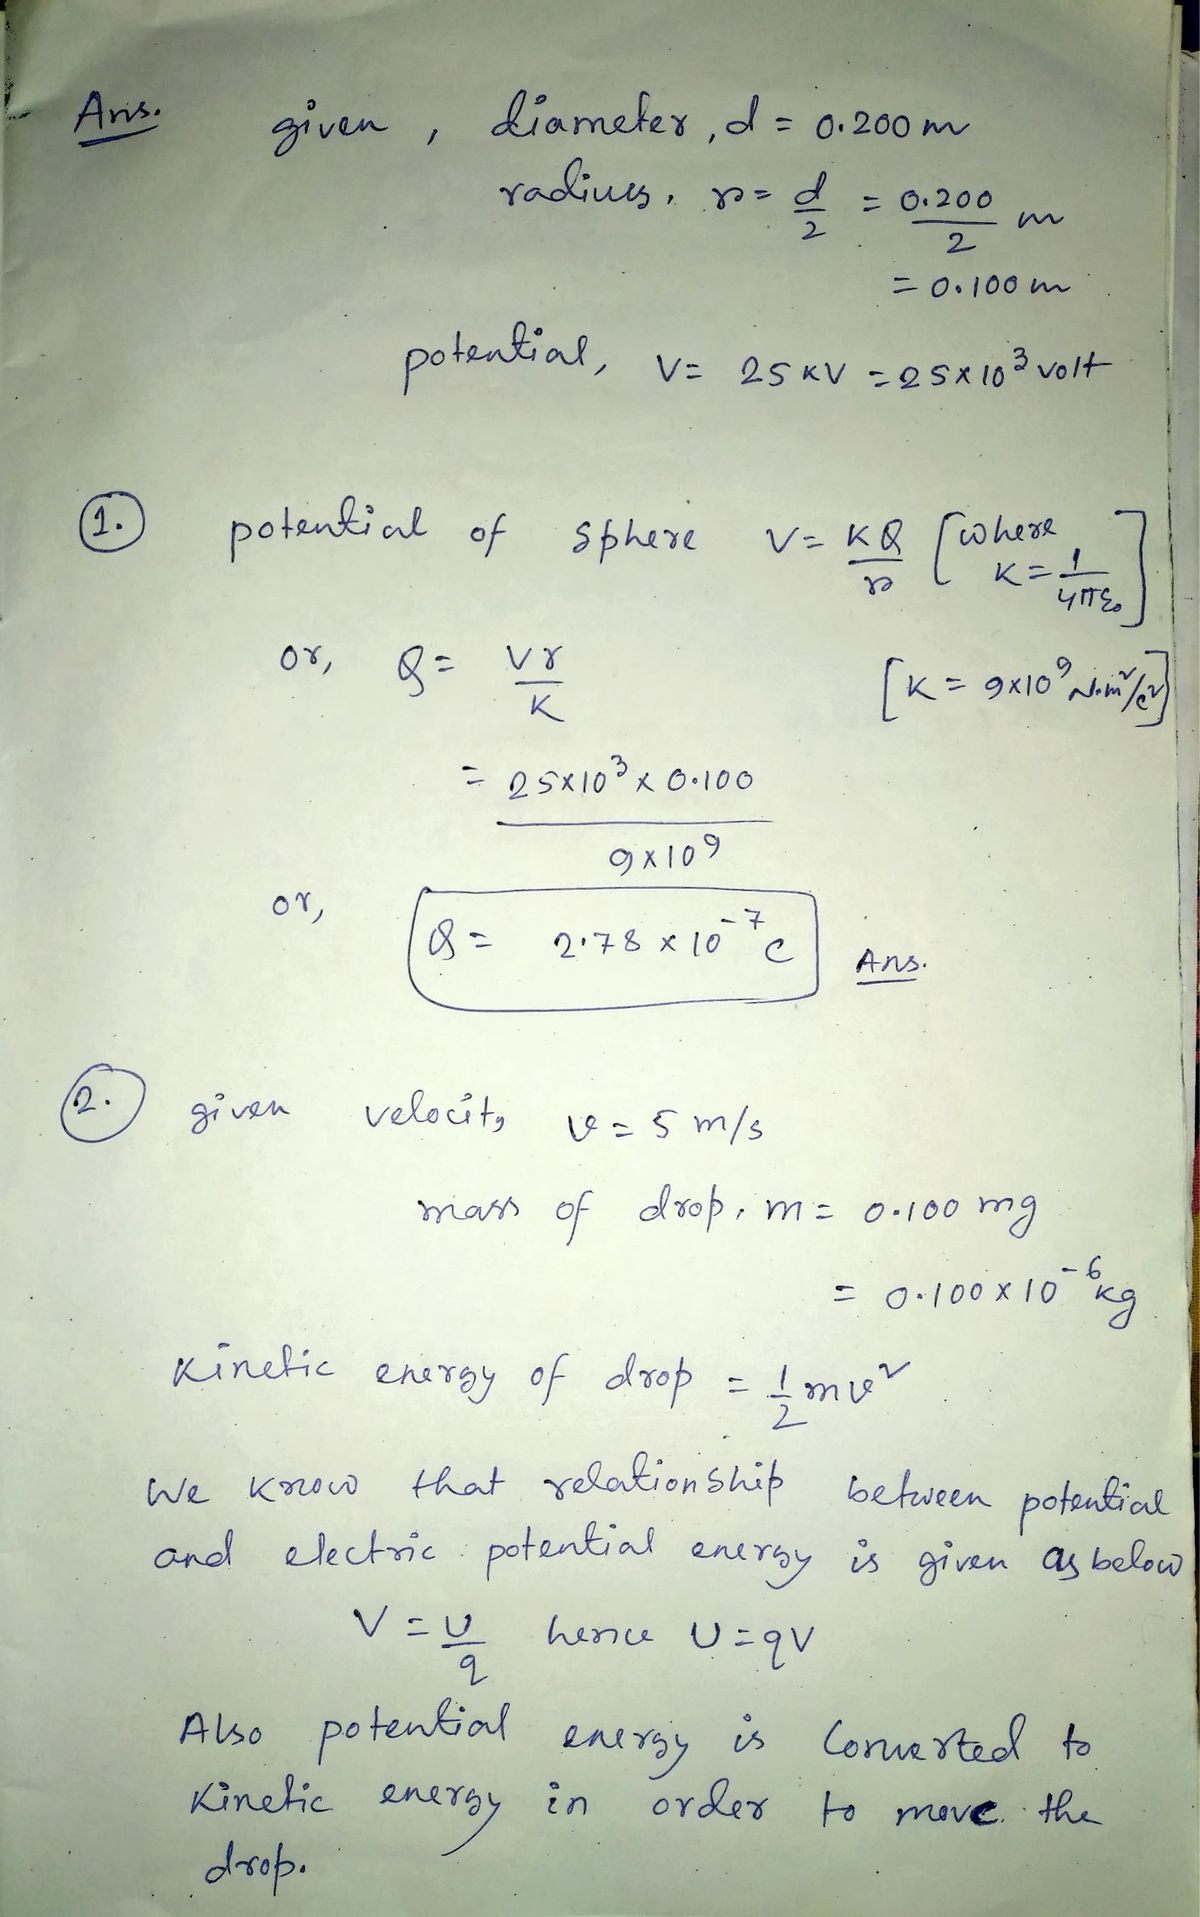 Ans. given, diameter, d = 0.200 m
radius, r = d/2 = 0.200/2 m
= 0.100 m
potential, V = 25 KV = 25 x 10³ volt
1. potential of sphere V = KQ/r [where K = 1/4πε₀]
or, Q = Vr/K [K = 9x10⁹ N.m²/c²]
= 25x10³ x 0.100 / 9x10⁹
or, Q = 2.78 x 10⁻⁷ C Ans.
2. given velocity v = 5 m/s
mass of drop, m = 0.100 mg
= 0.100 x 10⁻⁶ kg
Kinetic energy of drop = 1/2 mv²
We know that relationship between potential
and electric potential energy is given as below
V = U/q hence U = qV
Also potential energy is converted to
Kinetic energy in order to move the
drop.